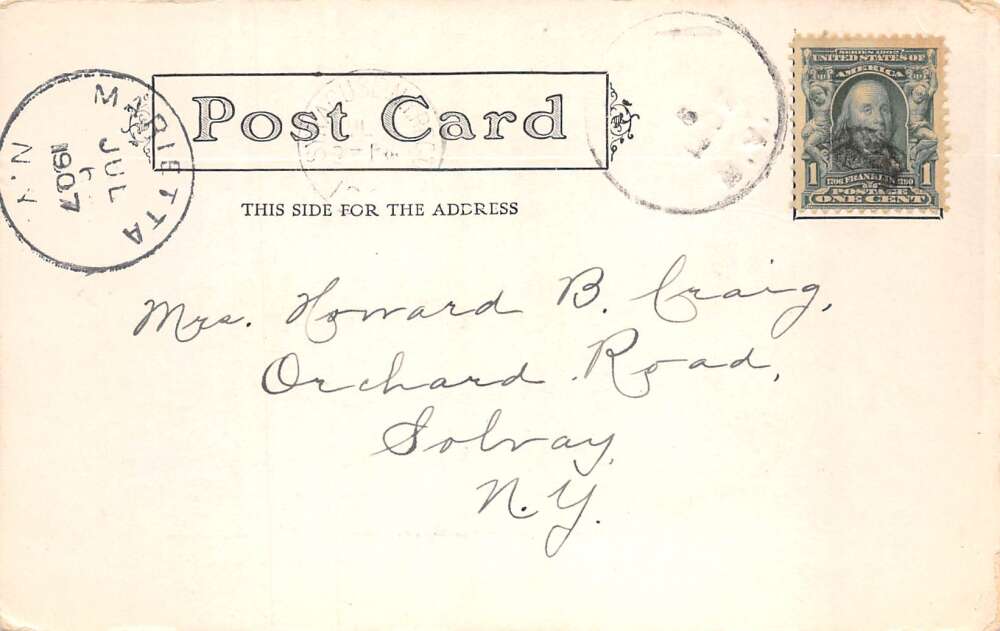 MARIETTA
N.Y.
JUL
1907
Post Card
THIS SIDE FOR THE ADDRESS
SERIES 1902
UNITED STATES OF
AMERICA
1706 FRANKLIN 1790
1 POSTAGE 1
ONE CENT
Mrs. Howard B. Craig,
Orchard Road,
Solvay,
N.Y.